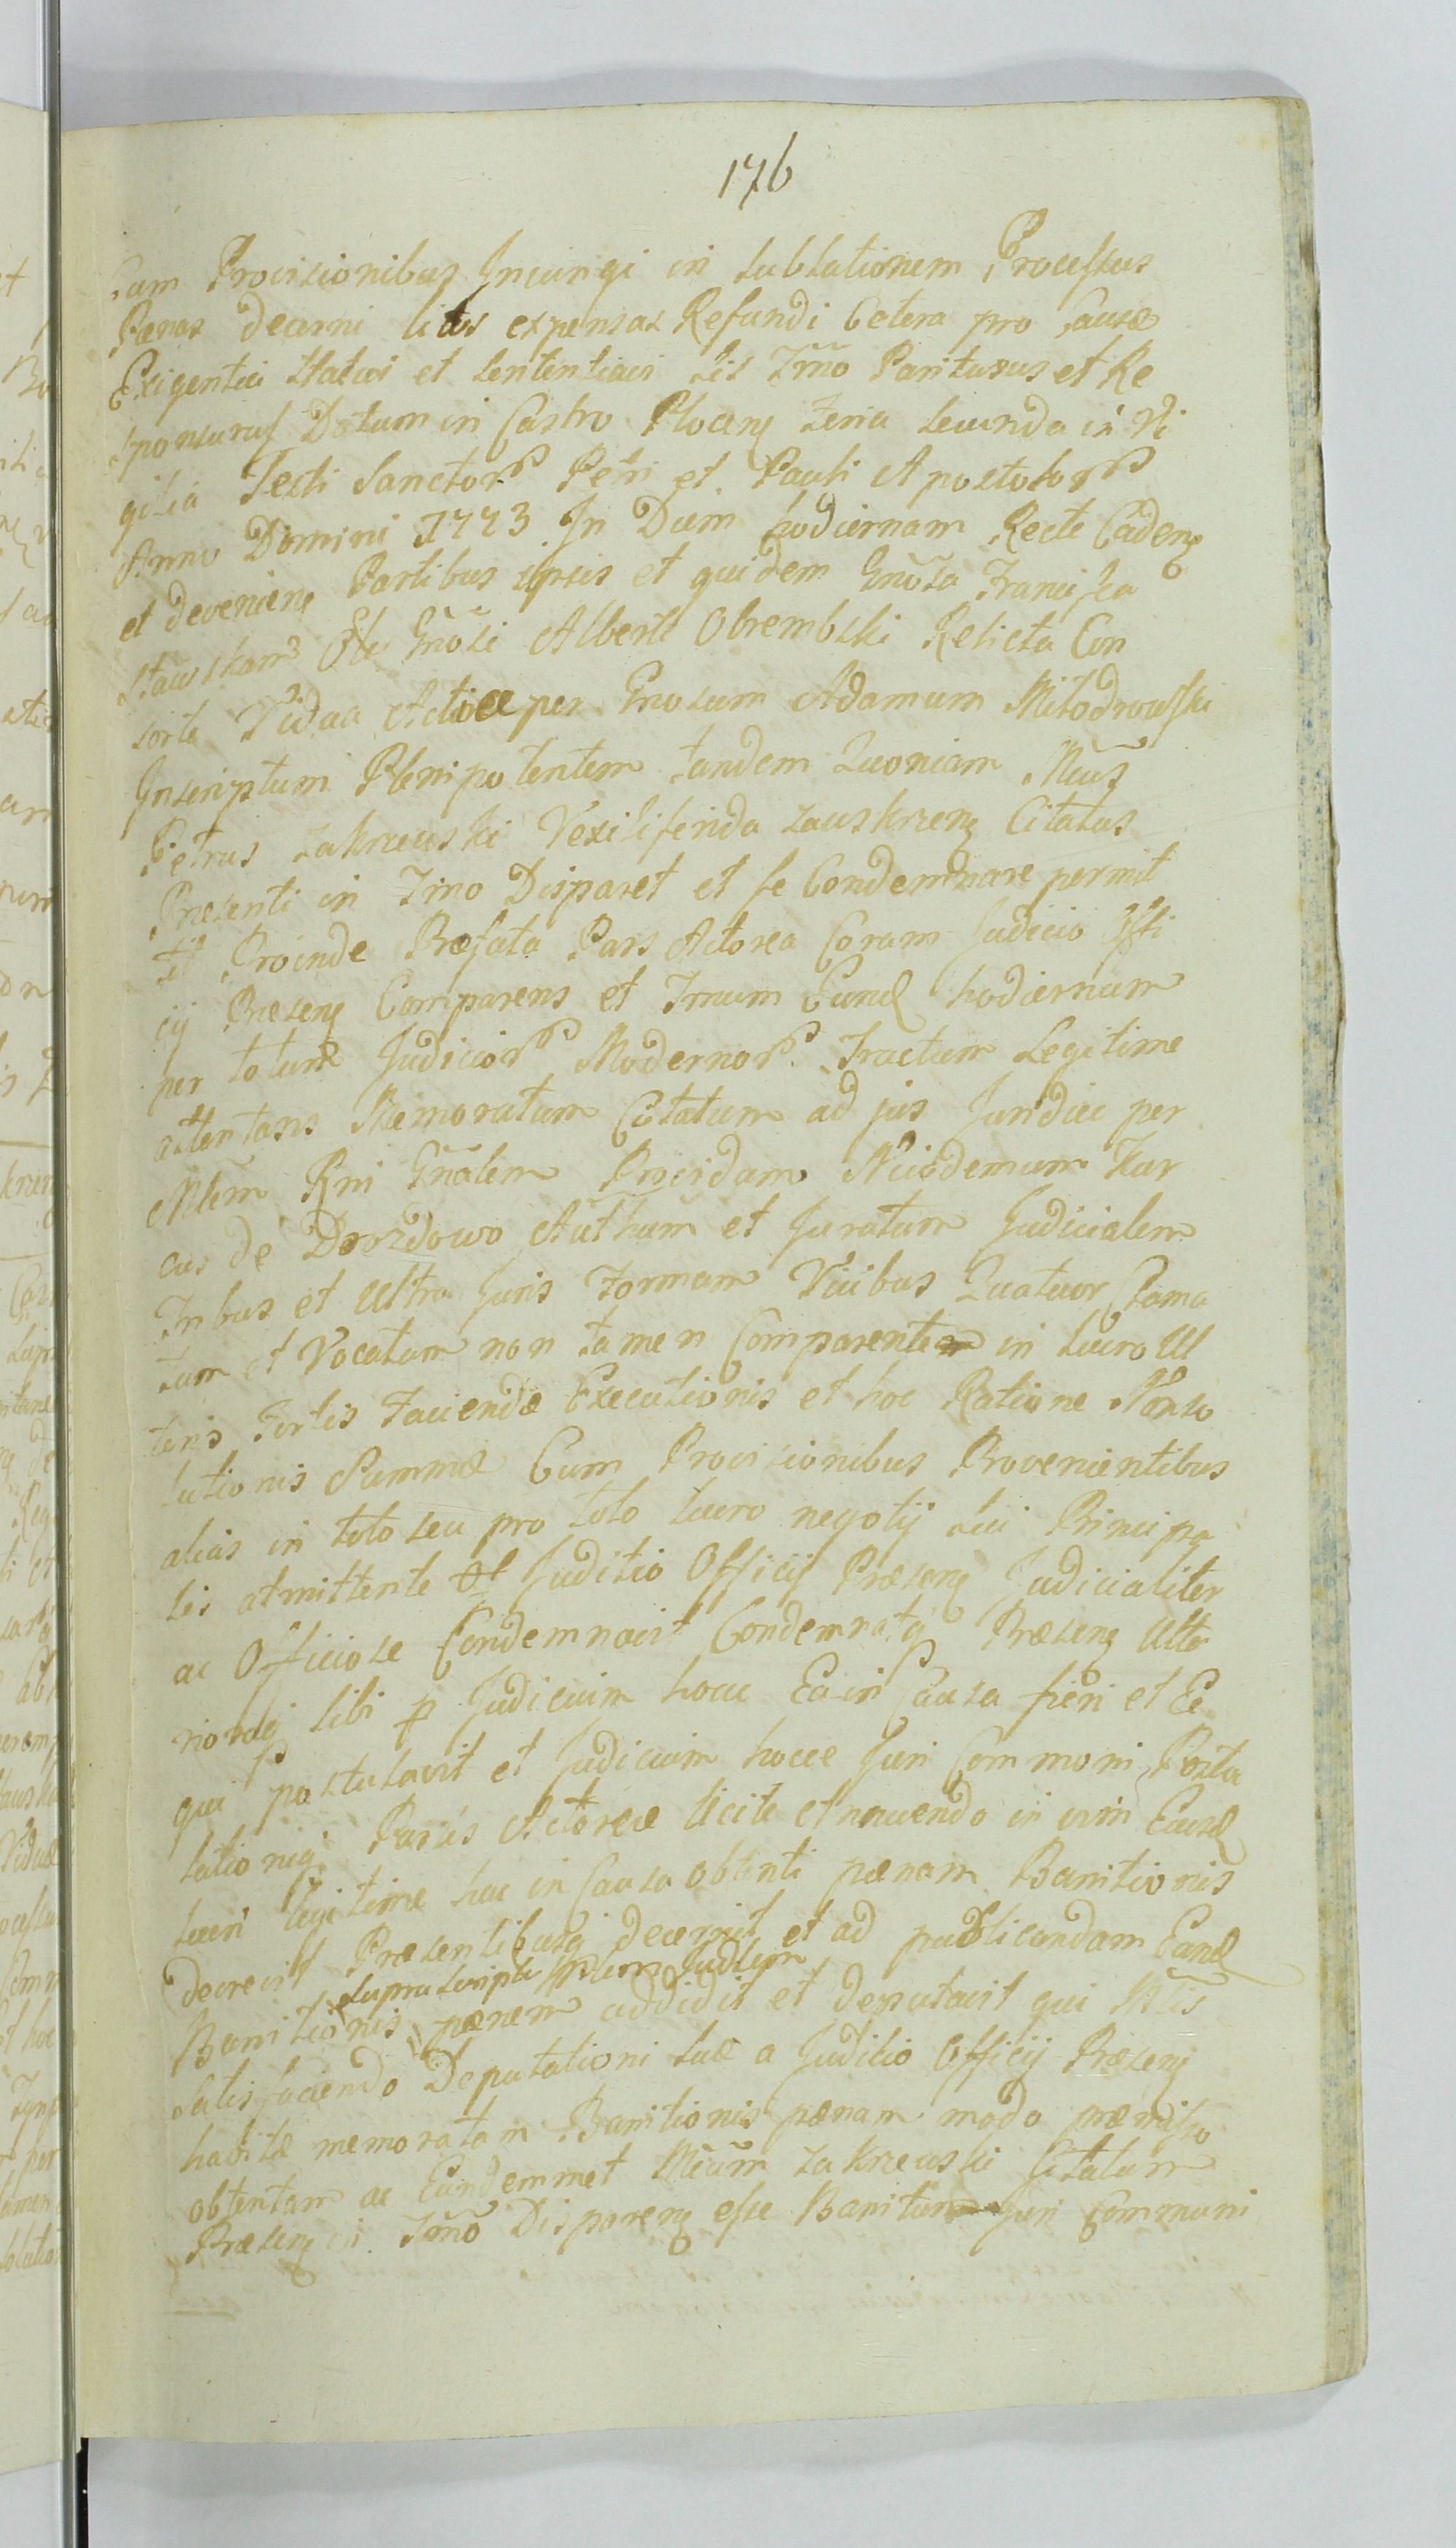 176
cam Provisionibus Injungi in sublationem Processus
Pœnas decerni litis expensas Refundi Cetera pro Causæ
Exigentia statui et sententiari sis Tmo Pariturus et Re
sponsurus Datum in Castro Plocen Feria secunda in Vi
gilia Festi Sanctor Petri et Pauli Apostolor
Anno Domini 1773 In Diem hodiernam Recte Caden
et devenien Partibus ipsis et quidem Gnosa Francisca
Olim Gnosi Alberti Obrembski Relicta Con
sorte Vidua Actorea per Gnosum Adamum Milodrowski
Inscriptum Plenipotentem tandem Quoniam Mcus
Petrus Zakrzewski Vexiliferida Zauskrzen Citatus
Præsenti in Tmo Disparet et se Condemnare permit
tit Proinde Præfata Pars Actorea Coram Judicio Offi
cij Præsen Comparens et Tmum Eund hodiernum
per totum Judicior Modernor Tractum Legitime
attentans Memoratum Citatum ad jus Juridice per
Mlem Rni Gnalem Providum Nicodemum Kur
de Drozdowo Authum et Juratum Judicialem
Tribus et Ultra Juris Formam Vicibus Quatuor Clama
tum et Vocatum non tamen Comparentem in lucro Ul
teris Fortis Faciendæ Executionis et hoc Ratione Nonso
lutionis Summæ Cum Provisionibus Provenientibus
alias in toto seu pro toto lucro negotij sui Principa
lis admittente Judicio Officij Præsen Judicialiter
ac Officiose Condemnavit Condemnatq Præsen Ulte
rioraq sibi p Judicium hocce Ea in Causa fieri et Ex
qui postulavit et Judicium hocce Juri Commoni Postu
lationiq Partis Actoreæ licite annuendo in vim Eiusd
lucri legitime hac in Causa obtenti pænam Banitionis
decrevit Præsentibusq decernit et ad publicandam Eand
suprascriptum Mlem Judlem
Banitionis pænam addidit et deputavit qui Mlis
Satisfaciendo Deputationi suæ a Juditio Officij Præsen
habitæ memoratam Banitionis pænam modo præmisso
obtentam ac Eundemmet Mcum Zakrzewski Citatum
Præsen in Tmo Disparen esse Banitum Juri Communi